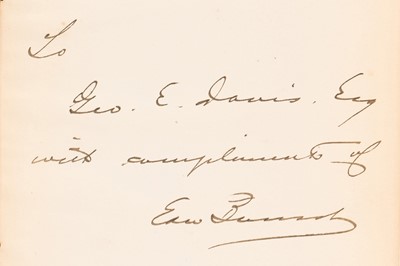 To
Geo. E. Davis. Esq
with compliment of
Edw Bausch